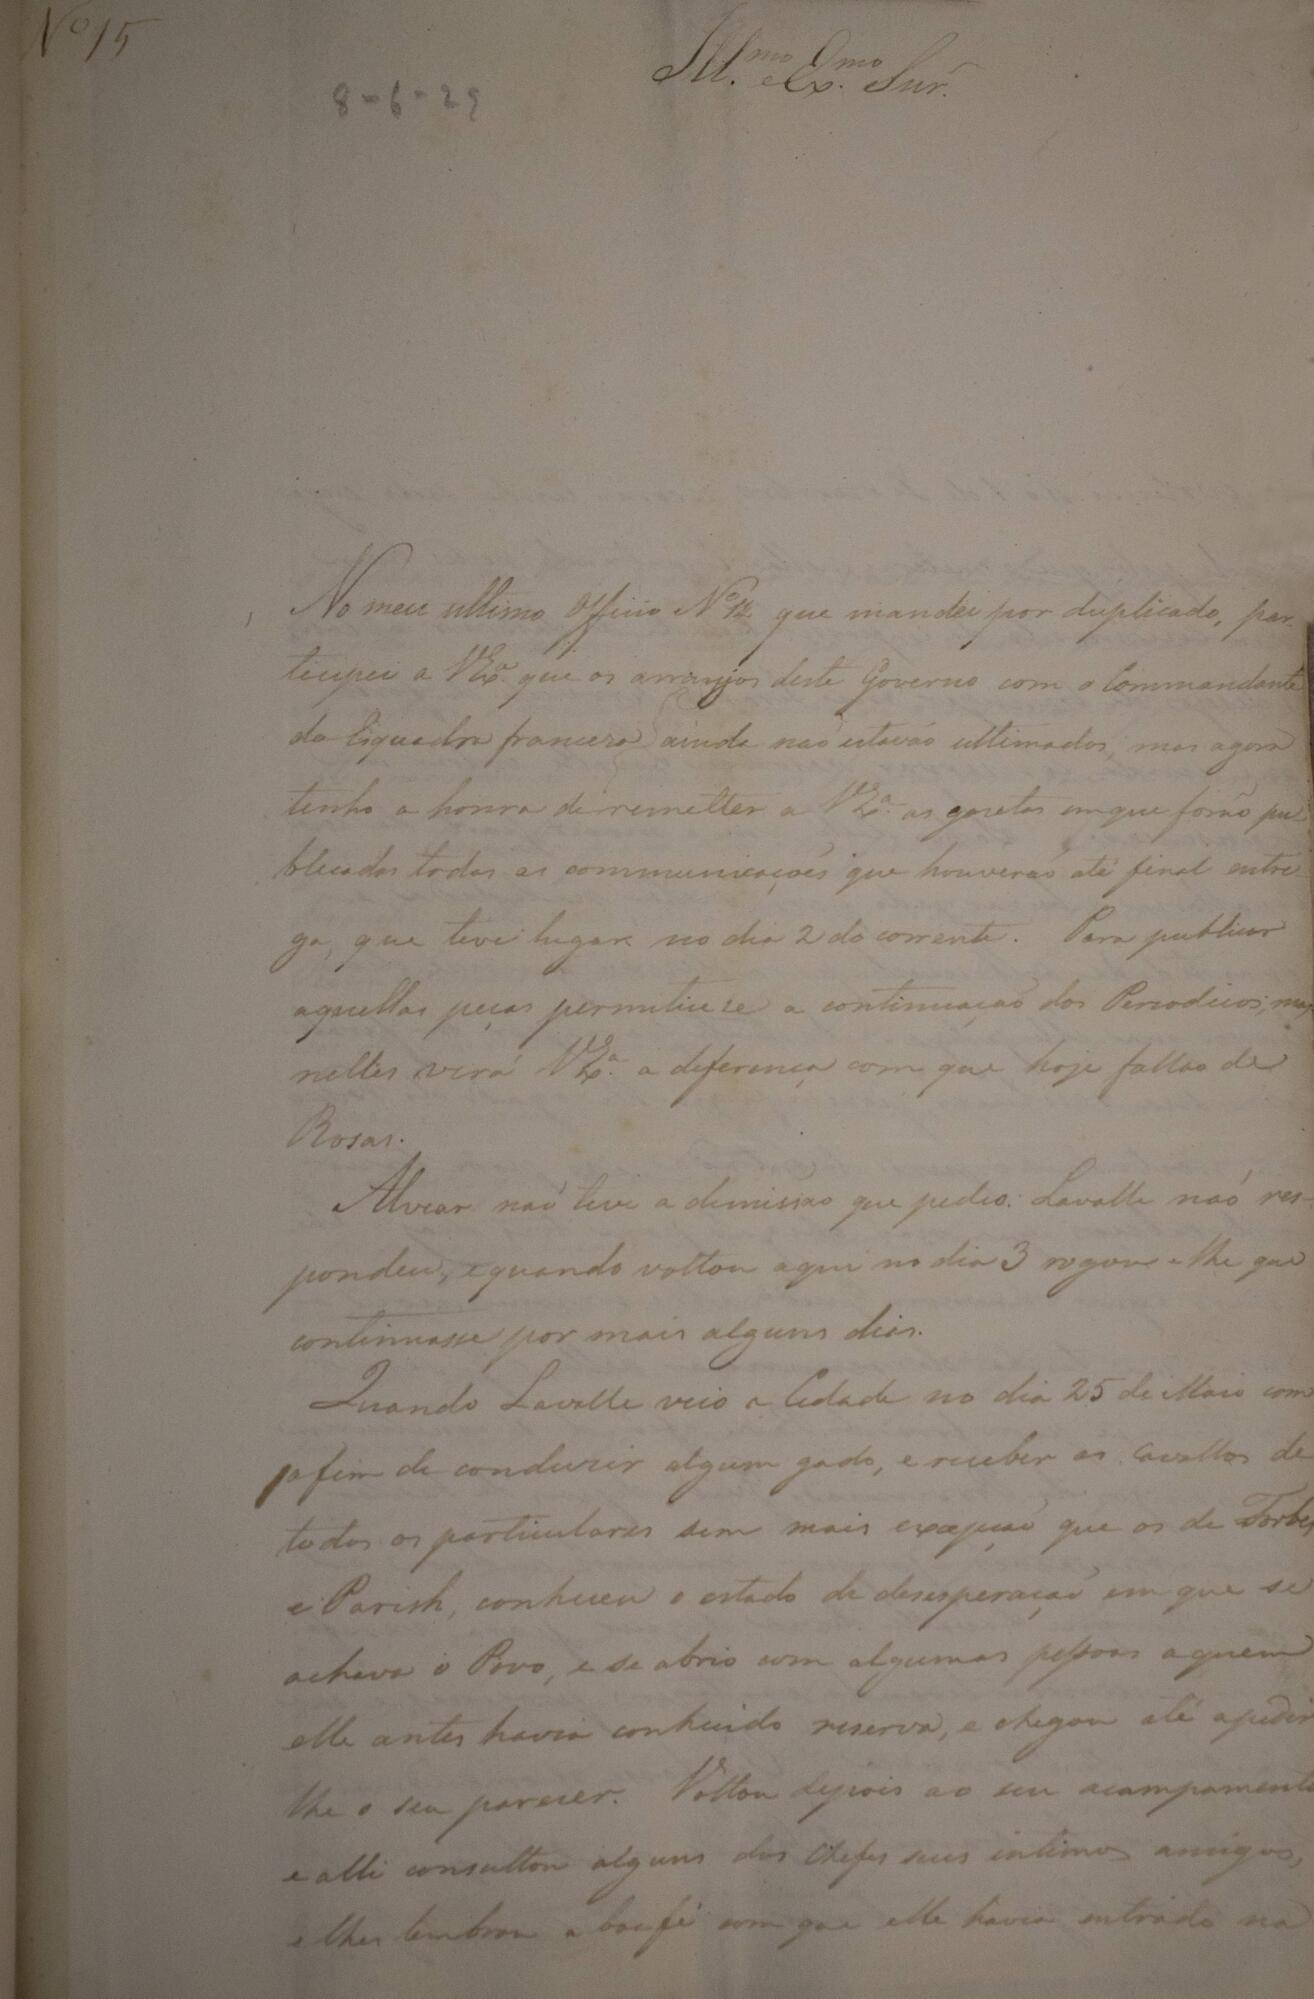 Nº 15
8-6-29
Ill.mo e Ex.mo Snr.
No meu ultimo Officio Nº 14 que mandei por duplicado, par-
ticipei a VEx.ª que os arranjos deste Governo com o Commandante
da Esquadra franceza ainda naõ estavaõ ultimados, mas agora
tenho a honra de remetter a VEx.ª as gazetas em que foraõ pu
blicadas todas as communicações que houveraõ até final entre-
ga, que teve lugar no dia 2 do corrente. Para publicar
aquellas peças permitiu se a continuaçaõ dos Periodicos, mas
nelles verá VEx.ª a diferença com que hoje fallaõ de
Rosas.
Alvear naõ teve a demissaõ que pedio: Lavalle naõ res
pondeu, e quando voltou aqui no dia 3 rogou-lhe que
continuasse por mais alguns dias.
Quando Lavalle veio a Cidade no dia 25 de Maio com
o fim de conduzir algum gado, e receber os cavallos de
todos os particulares sem mais excepçaõ que os de Forbes
e Parish, conheceu o estado de desesperaçaõ em que se
achava o Povo, e se abrio com algumas pessoas a quem
elle antes havia conhecido reserva, e chegou até a pedir
lhe o seu parecer. Voltou depois ao seu acampamento
e alli consultou alguns dos Chefes seus intimos amigos,
e lhes lembrou a boa fé com que elle havia entrado na